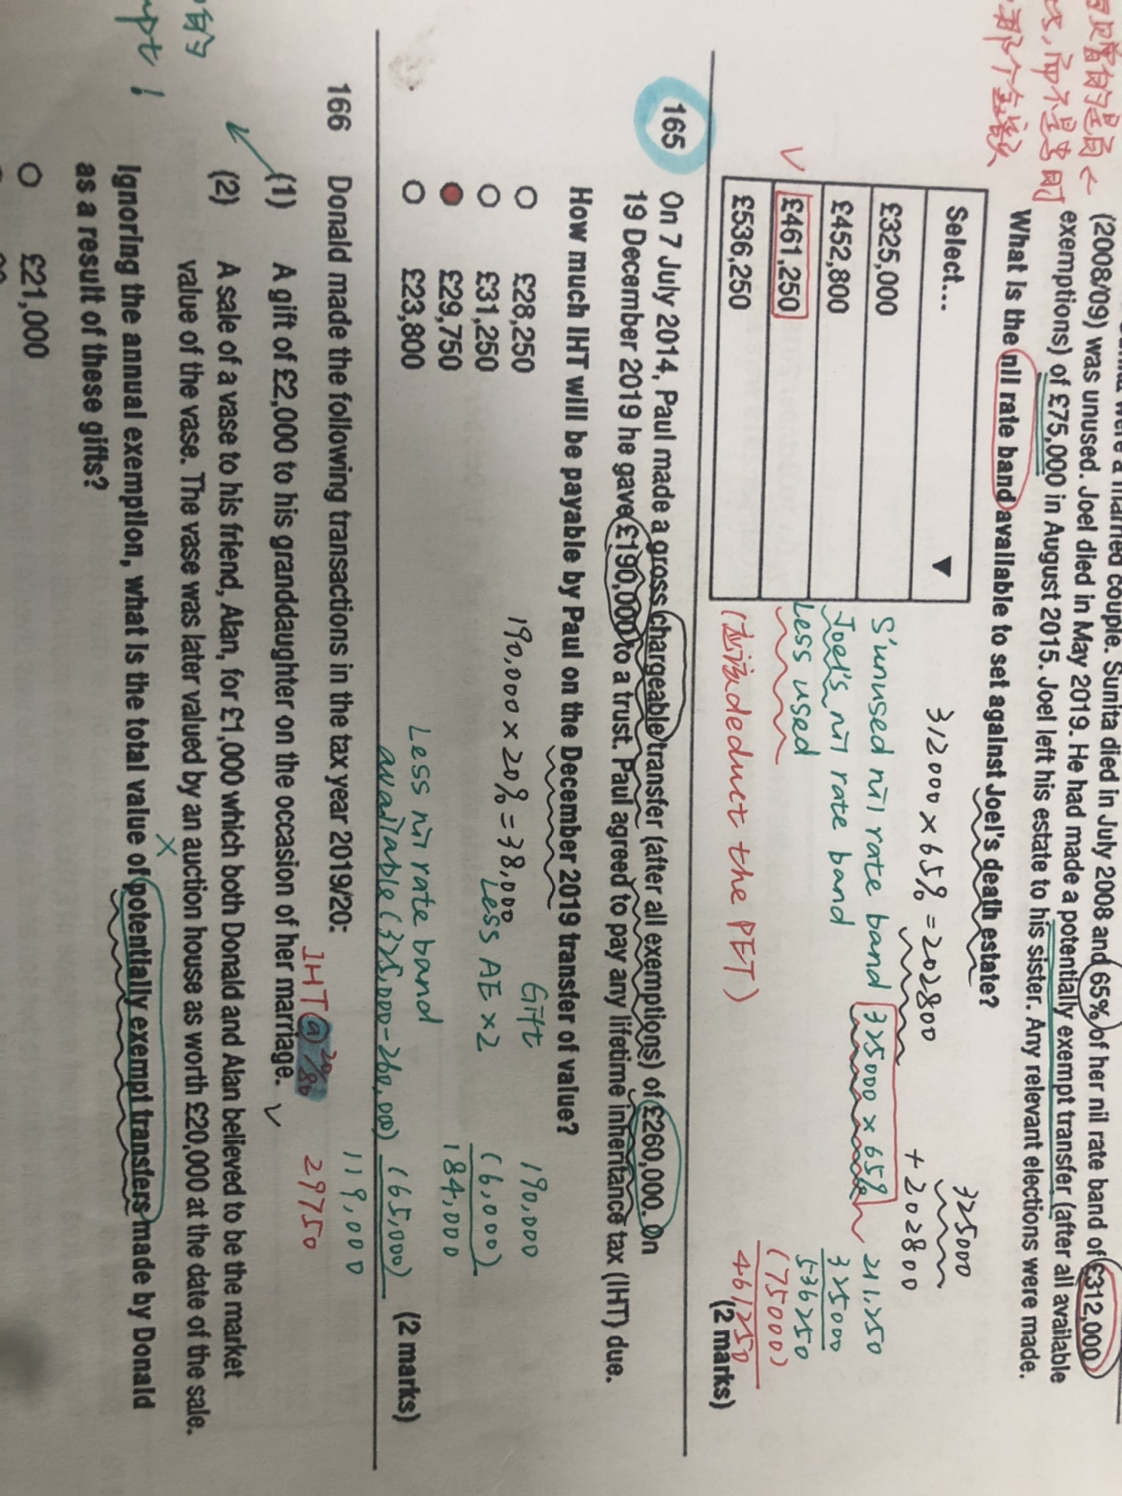 (2008/09) was unused. Joel died in May 2019. He had made a potentially exempt transfer (after all available
exemptions) of £75,000 in August 2015. Joel left his estate to his sister. Any relevant elections were made.
What is the nil rate band available to set against Joel's death estate?
312000 × 65% = 202800
325000
+ 202800
Select...
£325,000
£452,800
£461,250
£536,250
S'unused nil rate band 325000 × 65% 211,250
Joel's nil rate band 325000
536250
Less used (75000)
(应该deduct the PET) 461250
(2 marks)
165 On 7 July 2014, Paul made a gross chargeable transfer (after all exemptions) of £260,000. On
19 December 2019 he gave £190,000 to a trust. Paul agreed to pay any lifetime inheritance tax (IHT) due.
How much IHT will be payable by Paul on the December 2019 transfer of value?
£28,250
£31,250
£29,750
£23,800
190,000 × 20% = 38,000
Gift 190,000
Less AE × 2 (6,000)
184,000
Less nil rate band
available (325,000-260,000) (65,000)
119,000
IHT @ 20/80 29750
(2 marks)
166 Donald made the following transactions in the tax year 2019/20:
(1) A gift of £2,000 to his granddaughter on the occasion of her marriage.
(2) A sale of a vase to his friend, Alan, for £1,000 which both Donald and Alan believed to be the market
value of the vase. The vase was later valued by an auction house as worth £20,000 at the date of the sale.
Ignoring the annual exemption, what is the total value of potentially exempt transfers made by Donald
as a result of these gifts?
£21,000